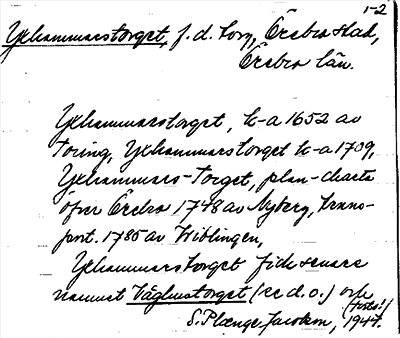 1-2
Yxhammarstorget, f.d. torg, Örebro stad,
Örebro län.
Yxhammarstorget, k-a 1652 av
Toring, Yxhammarstorget k-a 1709,
Yxhammars-Torget, plan-charta
öfver Örebro 1748 av Nyberg, trans-
port. 1785 av Wiblingen,
Yxhammarstorget fick senare
namnet Våghustorget (se d.o.)
(torts!)
S. Plænge Jacobson, 1947.